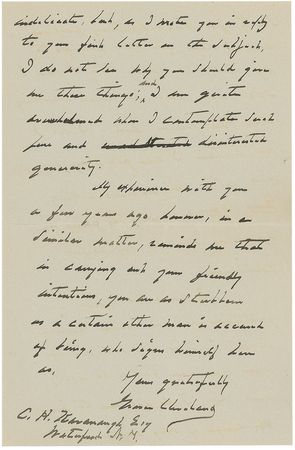 indelicate, but, as I wrote you in reply
to your first letter on the subject,
I do not see why you should give
me these things; and I am quite
overwhelmed when I contemplate such
pure and disinterested
generosity.
My experience with you
a few years ago however, in a
similar matter, reminds me that
in carrying out your friendly
intentions, you are as stubborn
as a certain other man is accused
of being, who signs himself here
as,
Yours gratefully
Grover Cleveland
C. H. Kavanaugh Esq
Waterford N.Y.